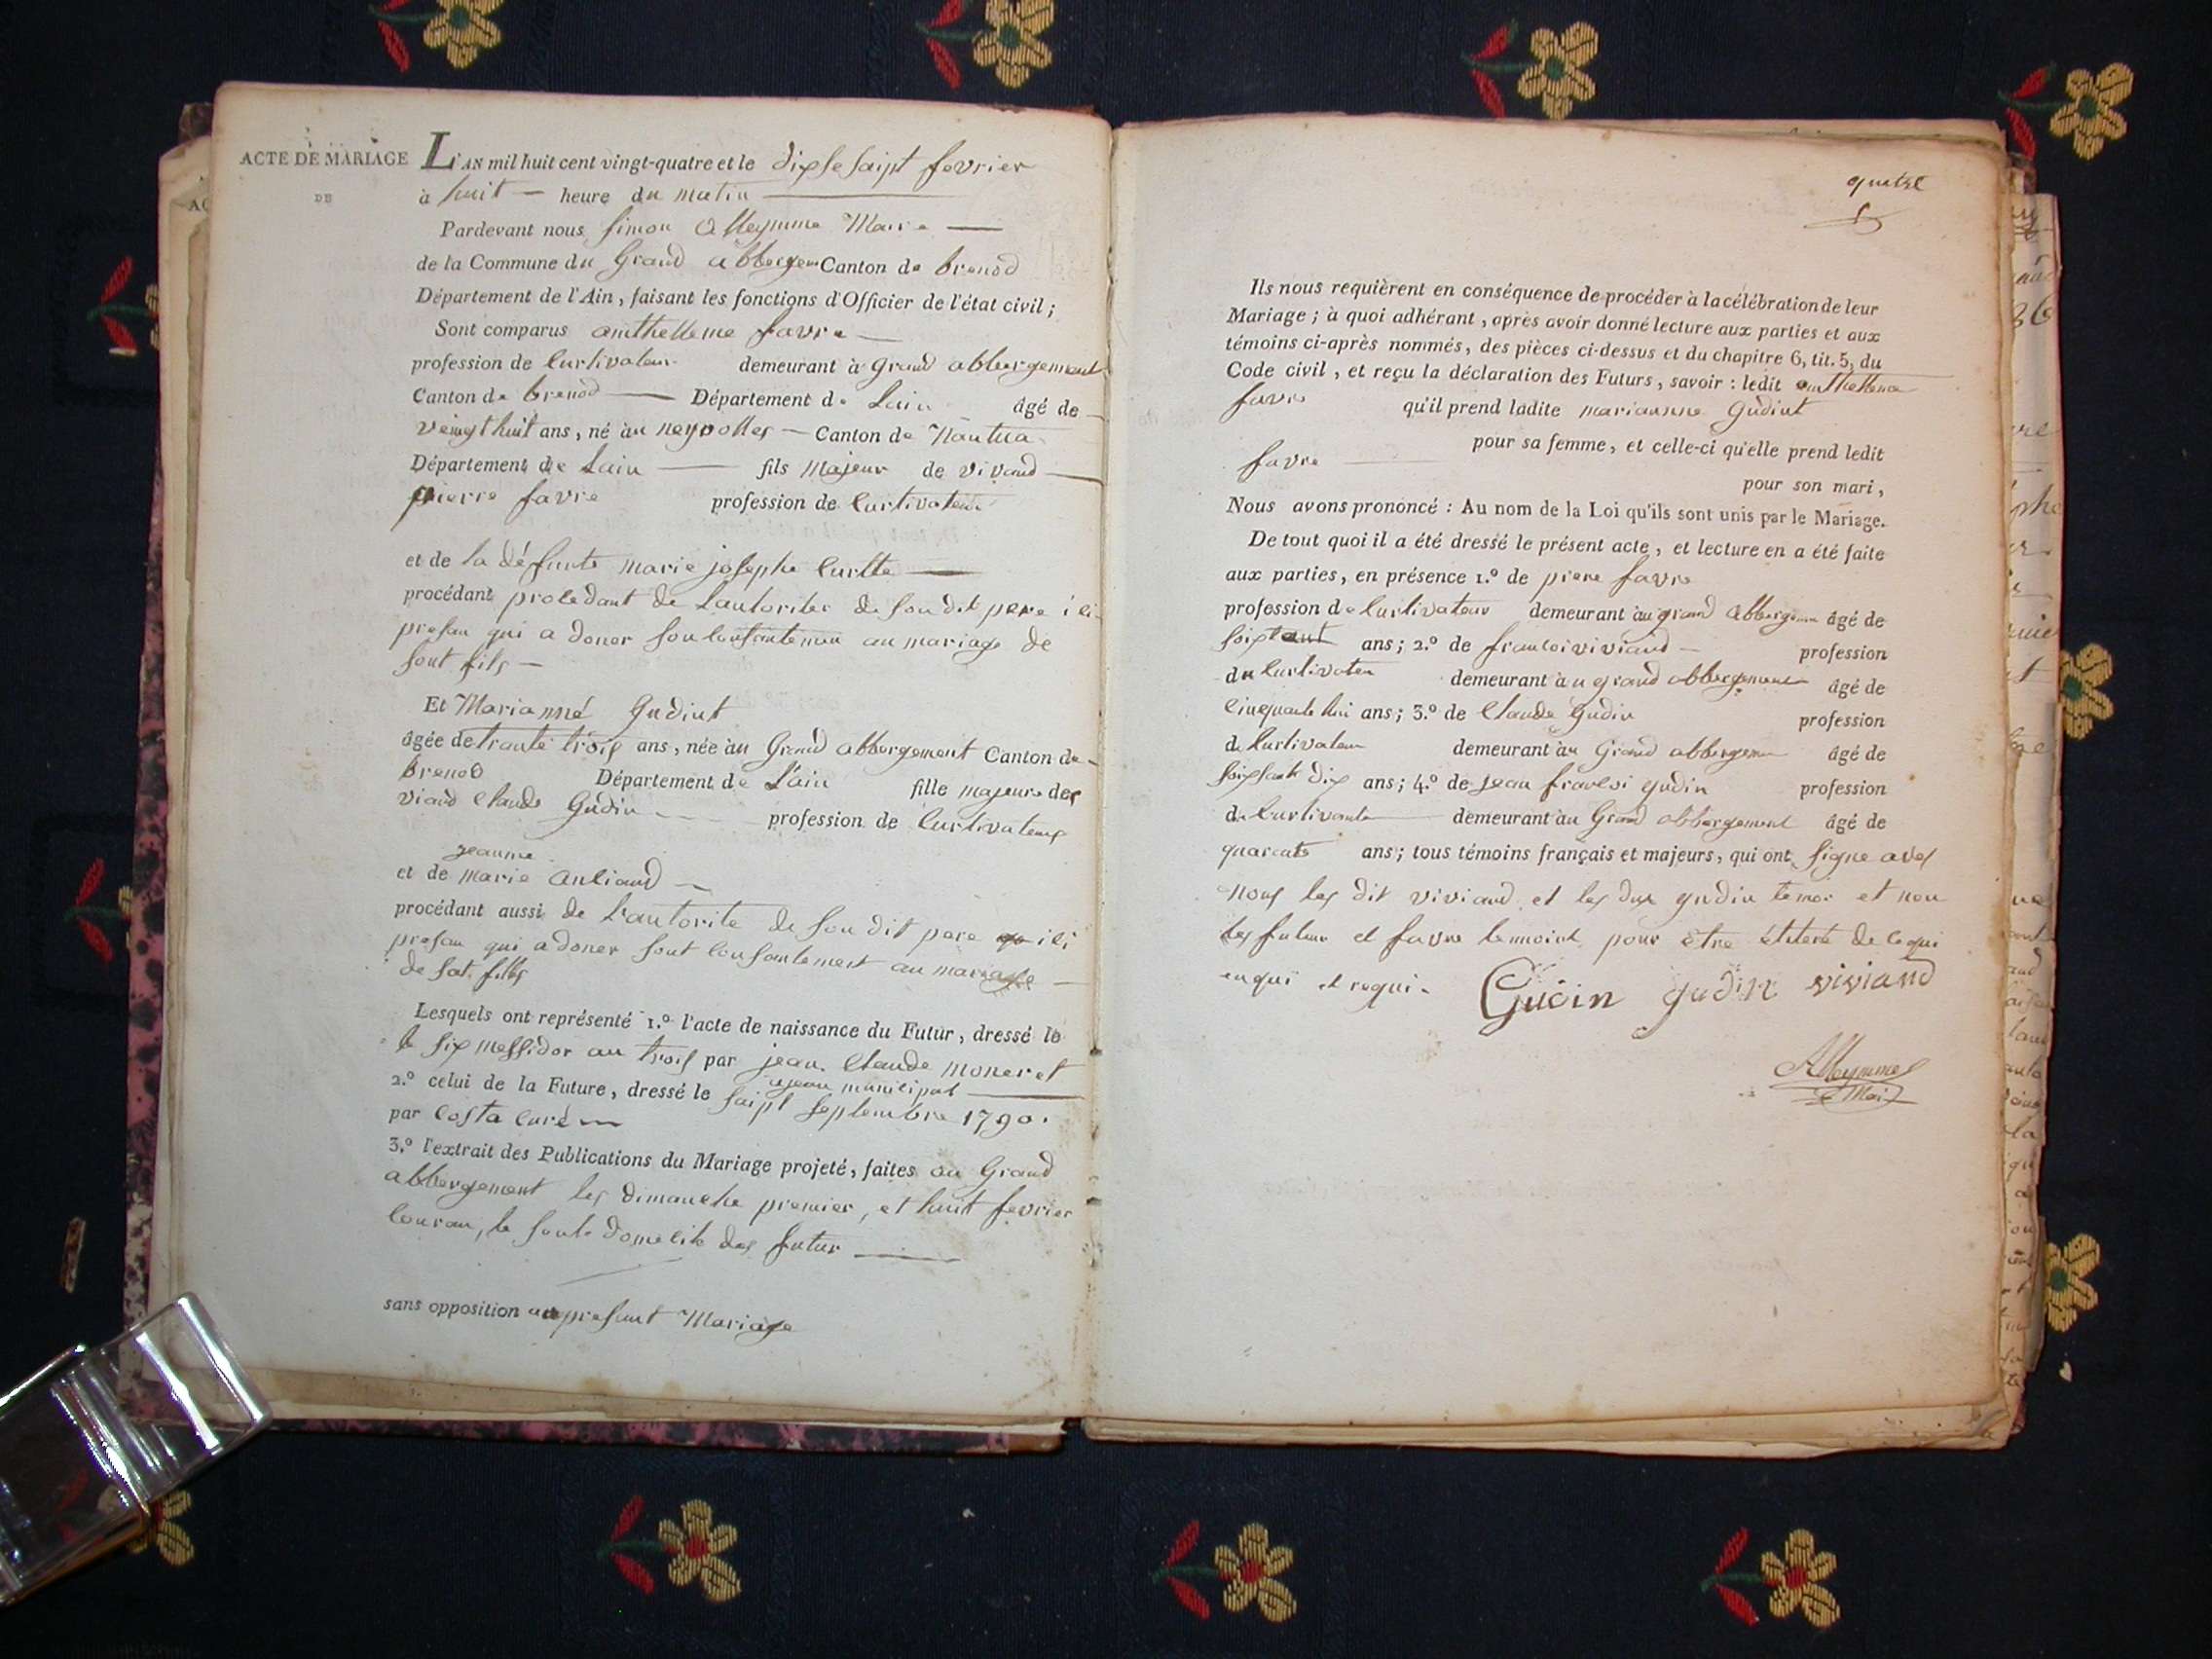 ACTE DE MARIAGE
DE
L'AN mil huit cent vingt-quatre et le dixsesaipt fevrier
à huit — heure du matin
Pardevant nous Simon Alleymme Maire
de la Commune du Grand abbergem Canton de brenod
Département de l'Ain, faisant les fonctions d'Officier de l'état civil;
Sont comparus anthelleme favre
profession de Curtivateur demeurant à Grand abbergement
Canton de brenod — Département de Lain âgé de
veingt huit ans, né au neyrolles — Canton de Nantua
Département de Lain — fils majeur de vivand
pierre favre profession de Curtivateur
et de la défunte marie josephe
procédant procedant de Lautoriter de son dit pere ici
presan qui a doner son au mariage de
sont fils —
Et Marianne Gudint
âgée de trante trois ans, née au Grand abbergement Canton de
brenod Département de L'ain fille majeure des
viand Claude Gudin profession de Curtivateur
jeanne
et de marie
procédant aussi de L'autorite de son dit pere ici
presan qui a doner sont consantement au mariage
de sat fille
Lesquels ont représenté 1.º l'acte de naissance du Futur, dressé le
le six messidor an trois par jean Claude moneret
municipal
2.º celui de la Future, dressé le saipt septembre 1790.
par Costa Curé
3.º l'extrait des Publications du Mariage projeté, faites au Grand
abbergement les dimanche premier, et huit fevrier
Couran, le domecile des futur
sans opposition au presant Mariage
quatre
Ils nous requièrent en conséquence de procéder à la célébration de leur
Mariage; à quoi adhérant, après avoir donné lecture aux parties et aux
témoins ci-après nommés, des pièces ci-dessus et du chapitre 6, tit. 5, du
Code civil, et reçu la déclaration des Futurs, savoir: ledit anthelleme
favre qu'il prend ladite marianne gudint
pour sa femme, et celle-ci qu'elle prend ledit
favre
pour son mari,
Nous avons prononcé: Au nom de la Loi qu'ils sont unis par le Mariage.
De tout quoi il a été dressé le présent acte, et lecture en a été faite
aux parties, en présence 1.º de piere favre
profession de Curtivateur demeurant au grand abbergem âgé de
ans; 2.º de francoi viviand — profession
de Curtivateu demeurant au grand abbergement âgé de
Cinquante ans; 3.º de Claude gudin profession
de Curtivateur demeurant au Grand abbergem âgé de
soixsante dix ans; 4.º de jean francoi gudin profession
de demeurant au Grand abbergement âgé de
quarante ans; tous témoins français et majeurs, qui ont signe avec
nous les dit viviand et les dux gudin temoi et non
les futur et favre temoint pour être de ce qui
enqui et requi.
Gudin gudin viviand
Alleymme
Mair